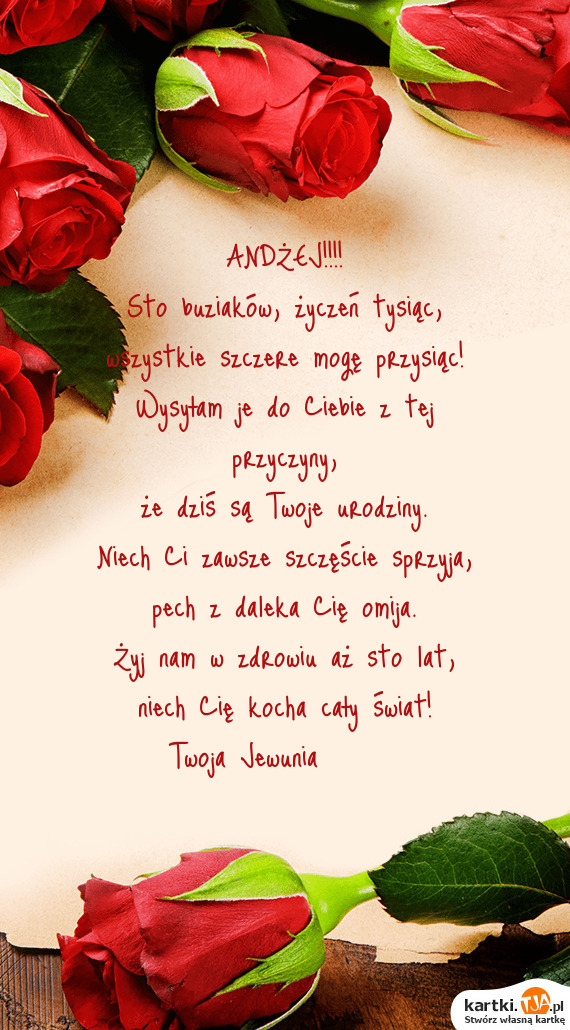 ANDŻEJ!!!!
Sto buziaków, życzeń tysiąc,
wszystkie szczere mogę przysiąc!
Wysyłam je do Ciebie z tej
przyczyny,
że dziś są Twoje urodziny.
Niech Ci zawsze szczęście sprzyja,
pech z daleka Cię omija.
Żyj nam w zdrowiu aż sto lat,
niech Cię kocha cały świat!
Twoja Jewunia
kartki.TJA.pl
Stwórz własną kartkę